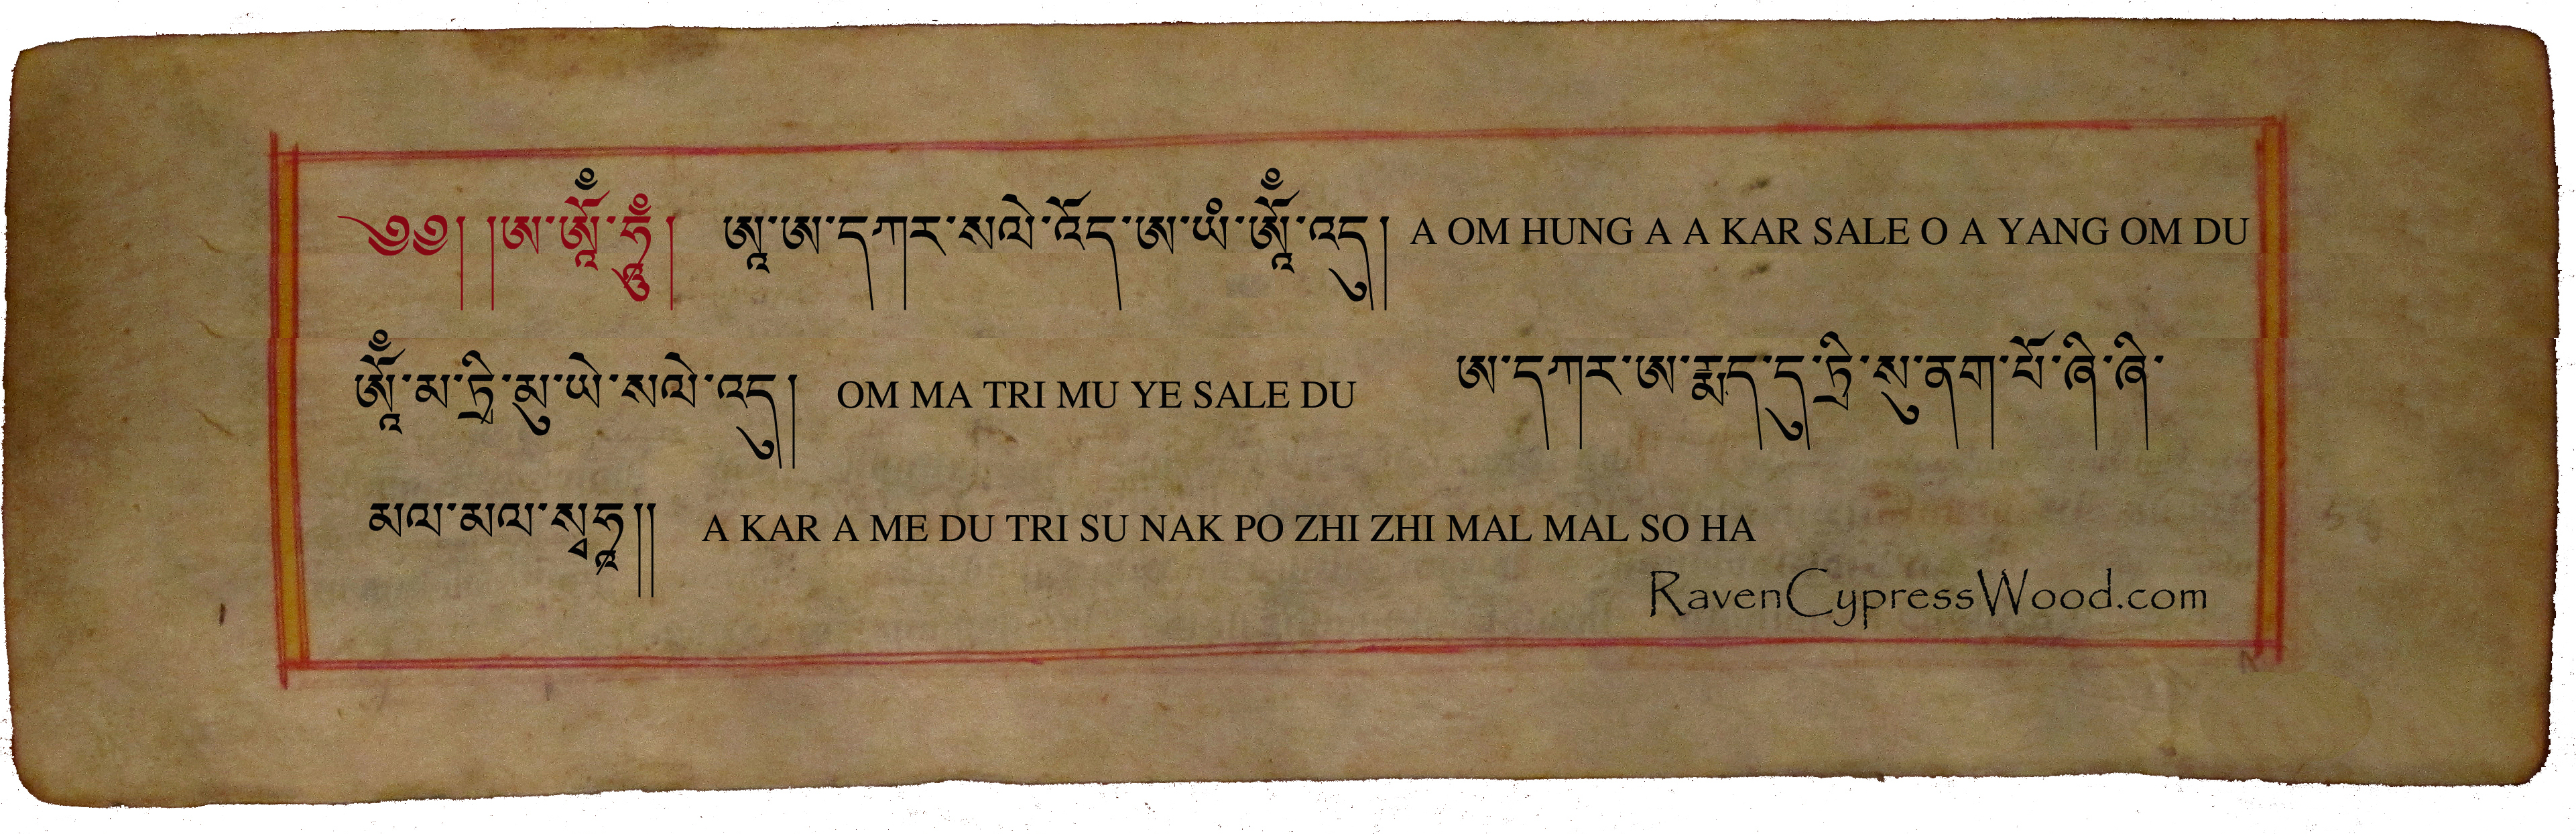 ༄༅། །ཨ་ཨཱོཾ་ཧཱུྃ། ཨཱ་ཨ་དཀར་སལེ་འོད་ཨ་ཡཾ་ཨཱོཾ་འདུ། A OM HUNG A A KAR SALE O A YANG OM DU
ཨཱོཾ་མ་ཏྲི་མུ་ཡེ་སལེ་འདུ། OM MA TRI MU YE SALE DU ཨ་དཀར་ཨ་རྨད་དུ་ཏྲི་སུ་ནག་པོ་ཞི་ཞི་
མལ་མལ་སྭཧཱ།། A KAR A ME DU TRI SU NAK PO ZHI ZHI MAL MAL SO HA
RavenCypressWood.com